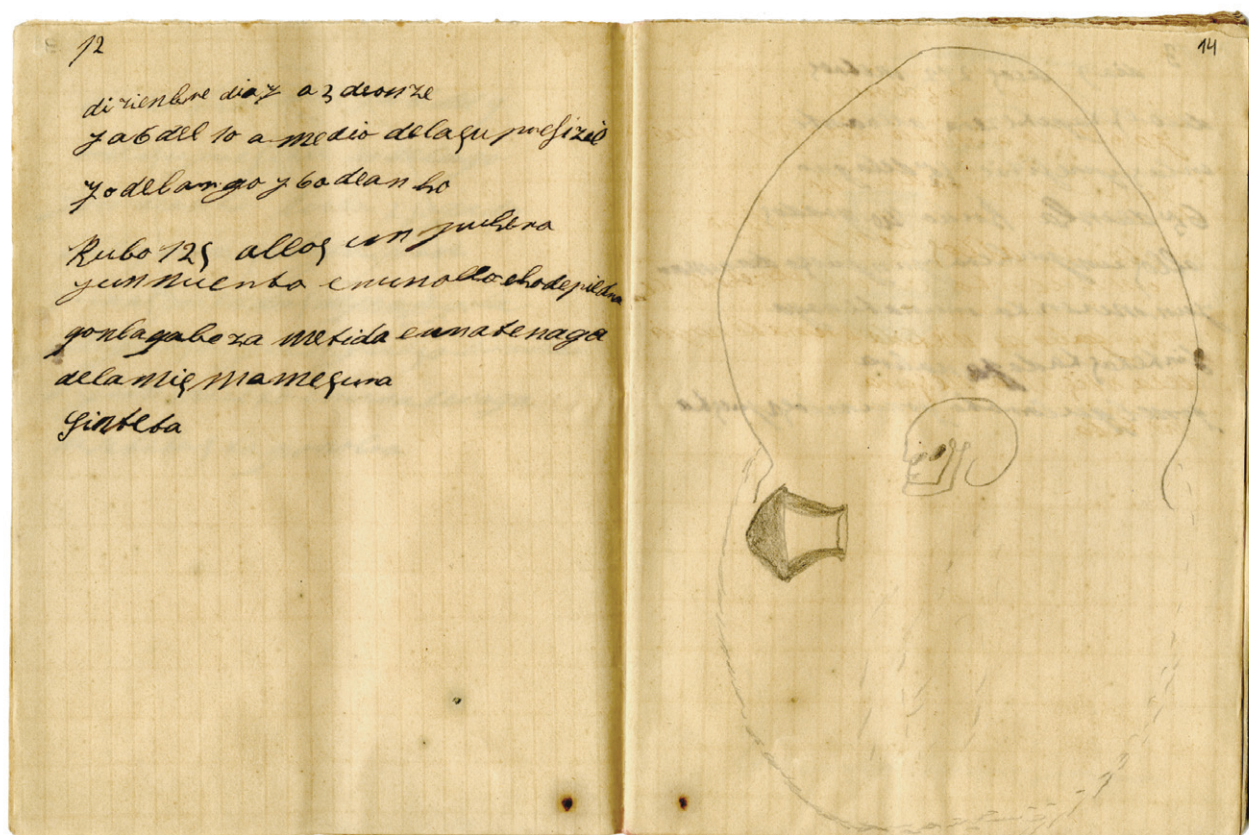 12
dizienbre dia 7 a 3 deonze
7 a 6 del 10 a medio delaçu
70 delango y 60 deanho
Kubo 125 allos un puhero
yunnuento enunallo ehodepiedna
gonlagaboza metida eunatenaga
delamiçmameçuna
Sinteta
14